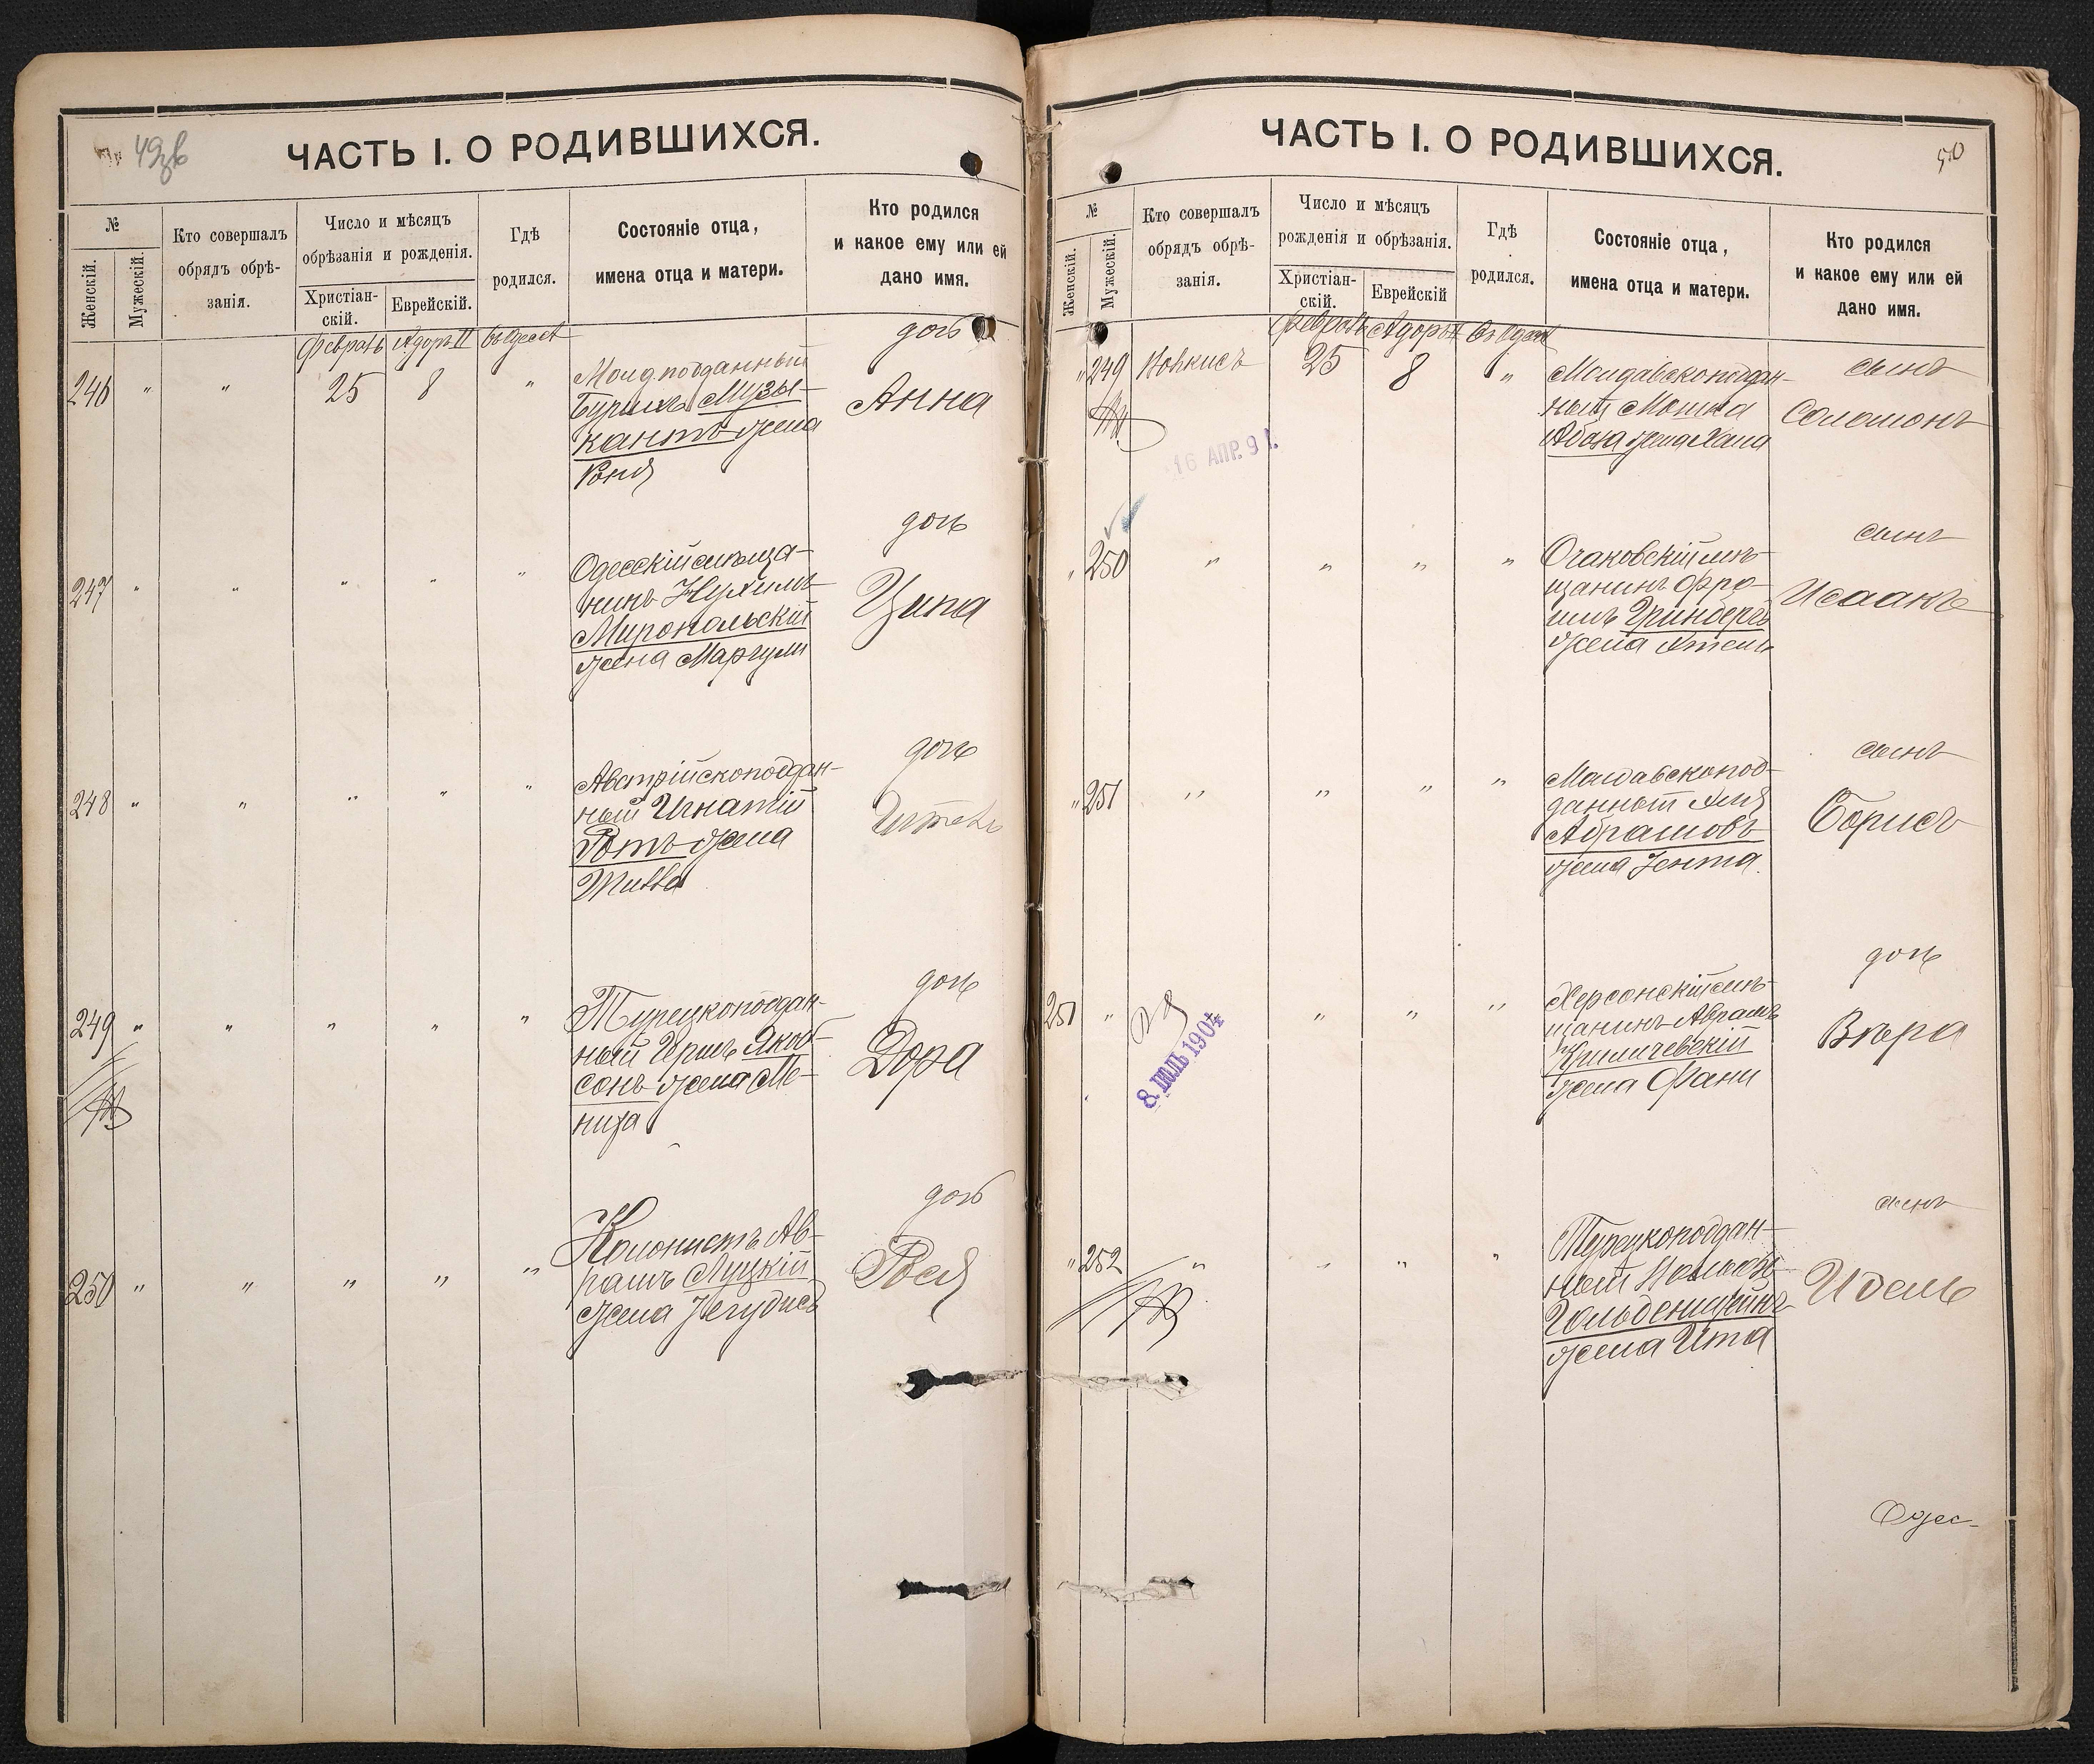 49зв
ЧАСТЬ I. О РОДИВШИХСЯ.
№
Женскій.
Мужескій.
Кто совершалъ
обрядъ обрѣ-
занія.
Число и мѣсяцъ
обрѣзанія и рожденія.
Христіан-
скій.
Еврейскій.
Гдѣ
родился.
Состояніе отца,
имена отца и матери.
Кто родился
и какое ему или ей
дано имя.
Февраль Адоръ II въ Одессѣ
246 " " 25 8 "
Молд. подданный
Бурихъ Музы-
кантъ жена
Роня
дочь
Анна
247 " " " " "
Одесскій мѣща-
нинъ Нухимъ
Миропольскій
жена Маргули
дочь
Ципа
248 " " " " "
Австрійскоподдан-
ный Игнатій
Ротъ жена
дочь
249 " " " " "
Турецкоподдан-
ный Гершъ Якоб-
сонъ жена Ме-
ниха
дочь
Дора
250 " " " " "
Колонистъ Ав-
рамъ Луцкій
жена Іегудисъ
дочь
Рося
ЧАСТЬ I. О РОДИВШИХСЯ.
50
№
Женскій.
Мужескій.
Кто совершалъ
обрядъ обрѣ-
занія.
Число и мѣсяцъ
рожденія и обрѣзанія.
Христіан-
скій.
Еврейскій
Гдѣ
родился.
Состояніе отца,
имена отца и матери.
Кто родился
и какое ему или ей
дано имя.
Февраль Адоръ II Въ Одессѣ
" 249 25 8 "
16 АПР. 9 г.
Молдавскоподдан-
ный
жена Хана
сынъ
Соломонъ
" 250 " " " "
Очаковскій мѣ-
щанинъ Фро-
имъ Гринбергъ
жена Этель
сынъ
Исаакъ
" 251 " " " "
Молдавскопод-
данный
Абрамовъ
жена Зента
сынъ
Борисъ
251 " " " "
8. ІЮЛЬ 1904
Херсонскій мѣ-
щанинъ Абрамъ
Криличевскій
жена Фани
дочь
Вѣра
" 252 " " " "
Турецкоподдан-
ный
Гольденштейнъ
жена Ита
сынъ
Идель
Одес-